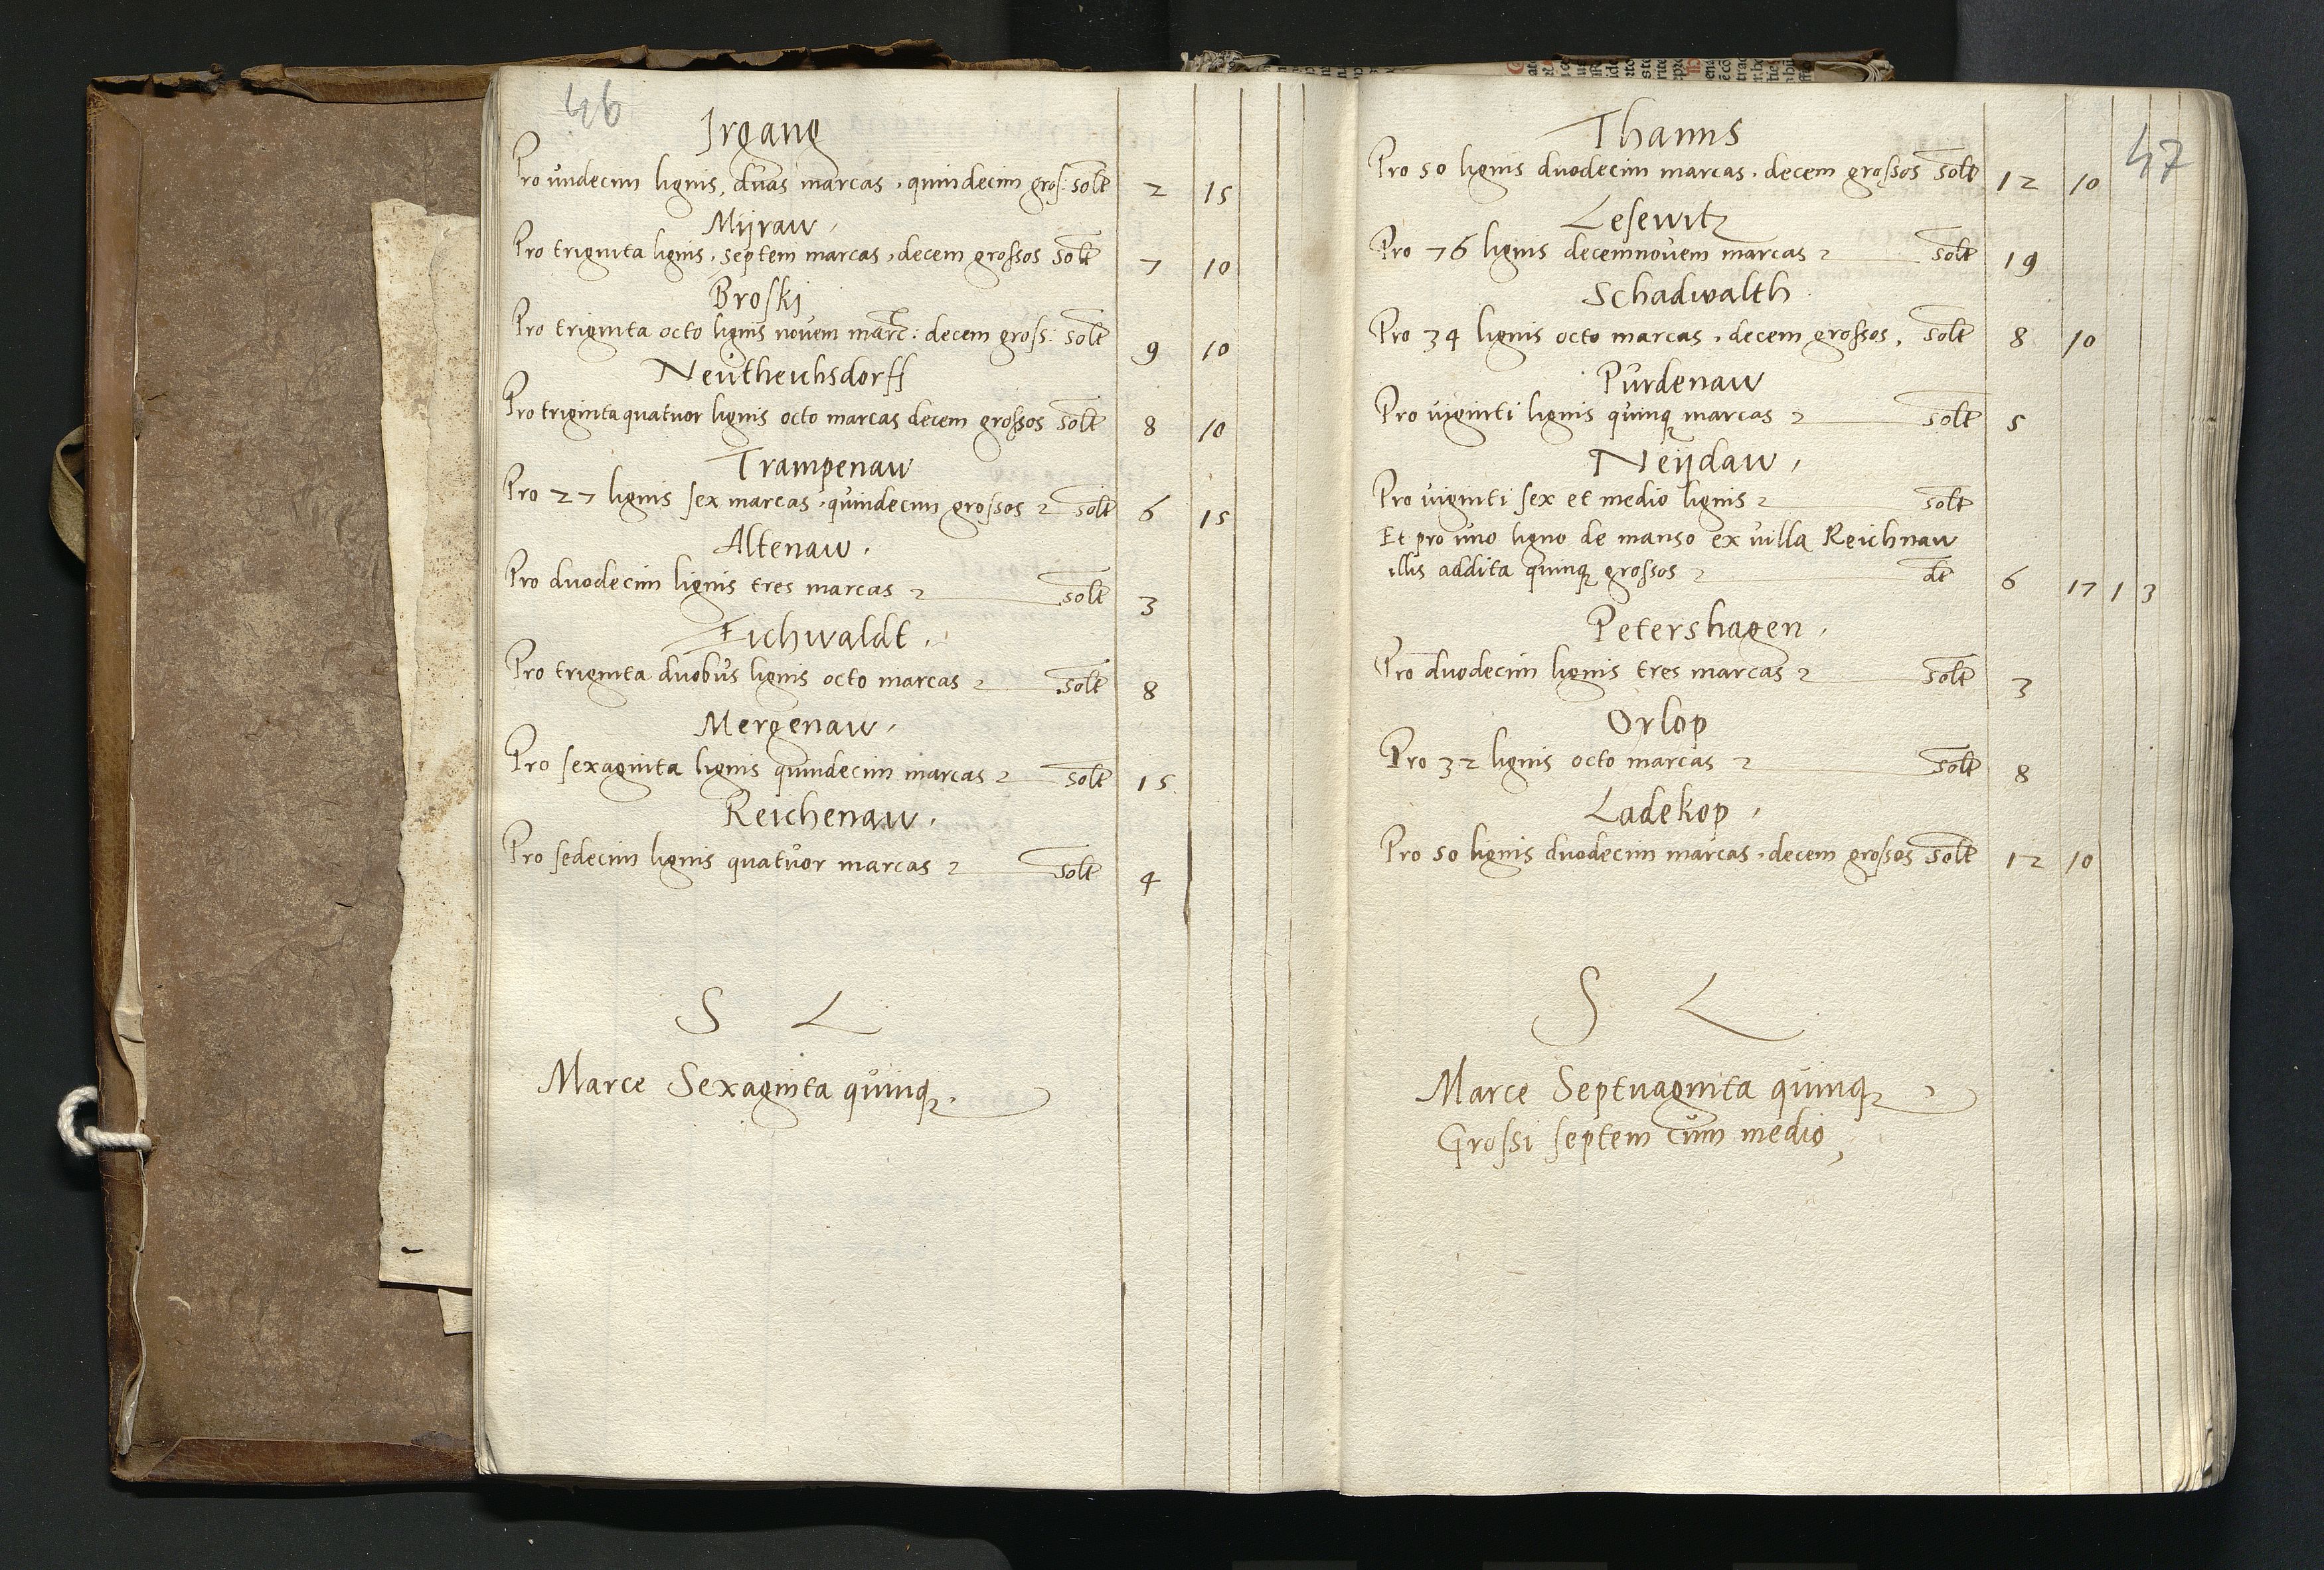 46
Irgang
Pro undecim lignis, duas marcas, quindecim gros: solt 2 15
Mijraw,
Pro triginta lignis, septem marcas, decem grossos solt 7 10
Broski
Pro triginta octo lignis novem marc: decem gross: solt 9 10
Neutheichsdorff
Pro triginta quatuor lignis octo marcas decem grossos solt 8 10
Trampenaw
Pro 27 lignis sex marcas, quindecim grossos solt 6 15
Altenaw.
Pro duodecim lignis tres marcas solt 3
Eichwaldt.
Pro triginta duobus lignis octo marcas solt 8
Mergenaw.
Pro sexaginta lignis quindecim marcas solt 15
Reichenaw.
Pro sedecim lignis quatuor marcas solt 4
S L
Marce Sexaginta quinq.
47
Thanns
Pro 50 lignis duodecim marcas, decem grossos solt 12 10
Lesewitz
Pro 76 lignis decemnovem marcas solt 19
Schadwalth
Pro 34 lignis octo marcas, decem grossos, solt 8 10
Purdenaw
Pro viginti lignis quinq marcas solt 5
Neijdaw,
Pro viginti sex et medio lignis solt
Et pro uno ligno de manso ex villa Reichnaw
illis addita quinq grossos dt 6 17 1 3
Petershagen.
Pro duodecim lignis tres marcas solt 3
Orlop
Pro 32 lignis octo marcas solt 8
Ladekop,
Pro 50 lignis duodecim marcas, decem grossos solt 12 10
S L
Marce Septuaginta quinq
Grossi septem cum medio,